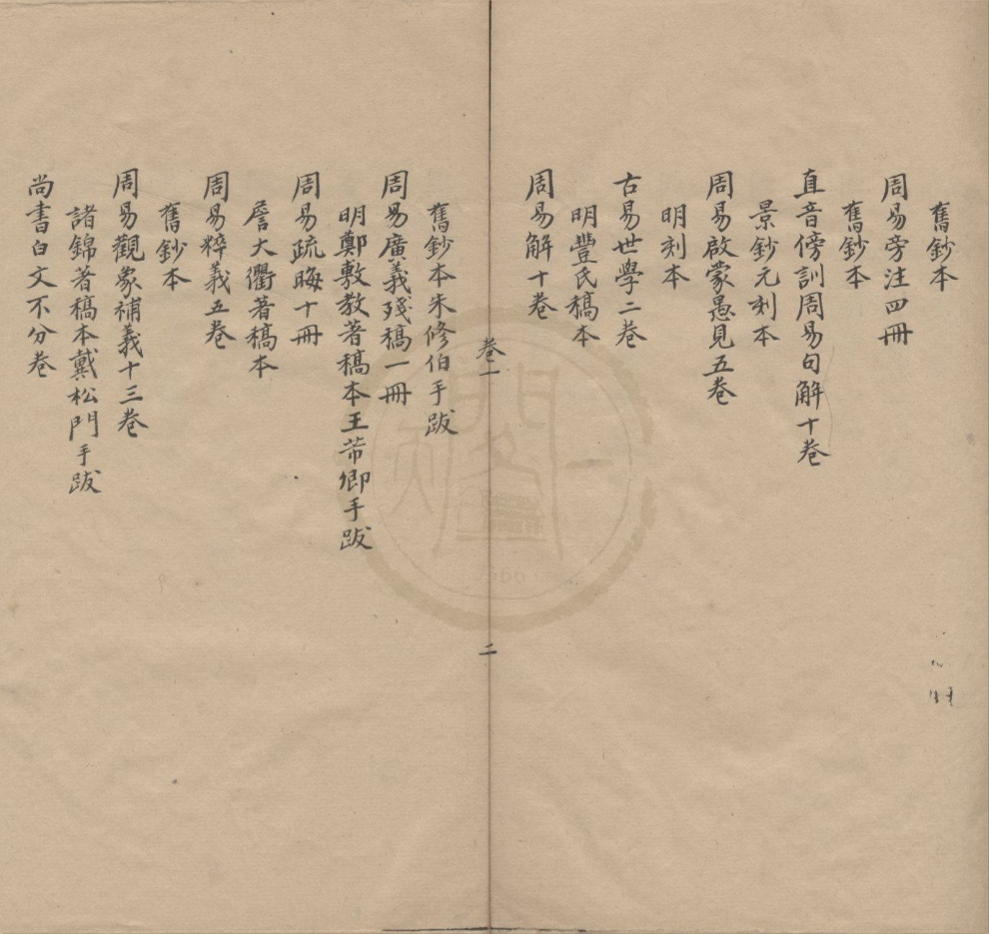 舊鈔本
周易旁注四冊
舊鈔本
直音傍訓周易句解十卷
景鈔元刻本
周易啟蒙愚見五卷
明刻本
古易世學二卷
明豐氏稿本
周易解十卷
卷一
二
舊鈔本朱修伯手跋
周易廣義殘稿一冊
明鄭敷教著稿本王芾卿手跋
周易疏晦十冊
詹大衢著稿本
周易粹義五卷
舊鈔本
周易觀象補義十三卷
諸錦著稿本戴松門手跋
尚書白文不分卷